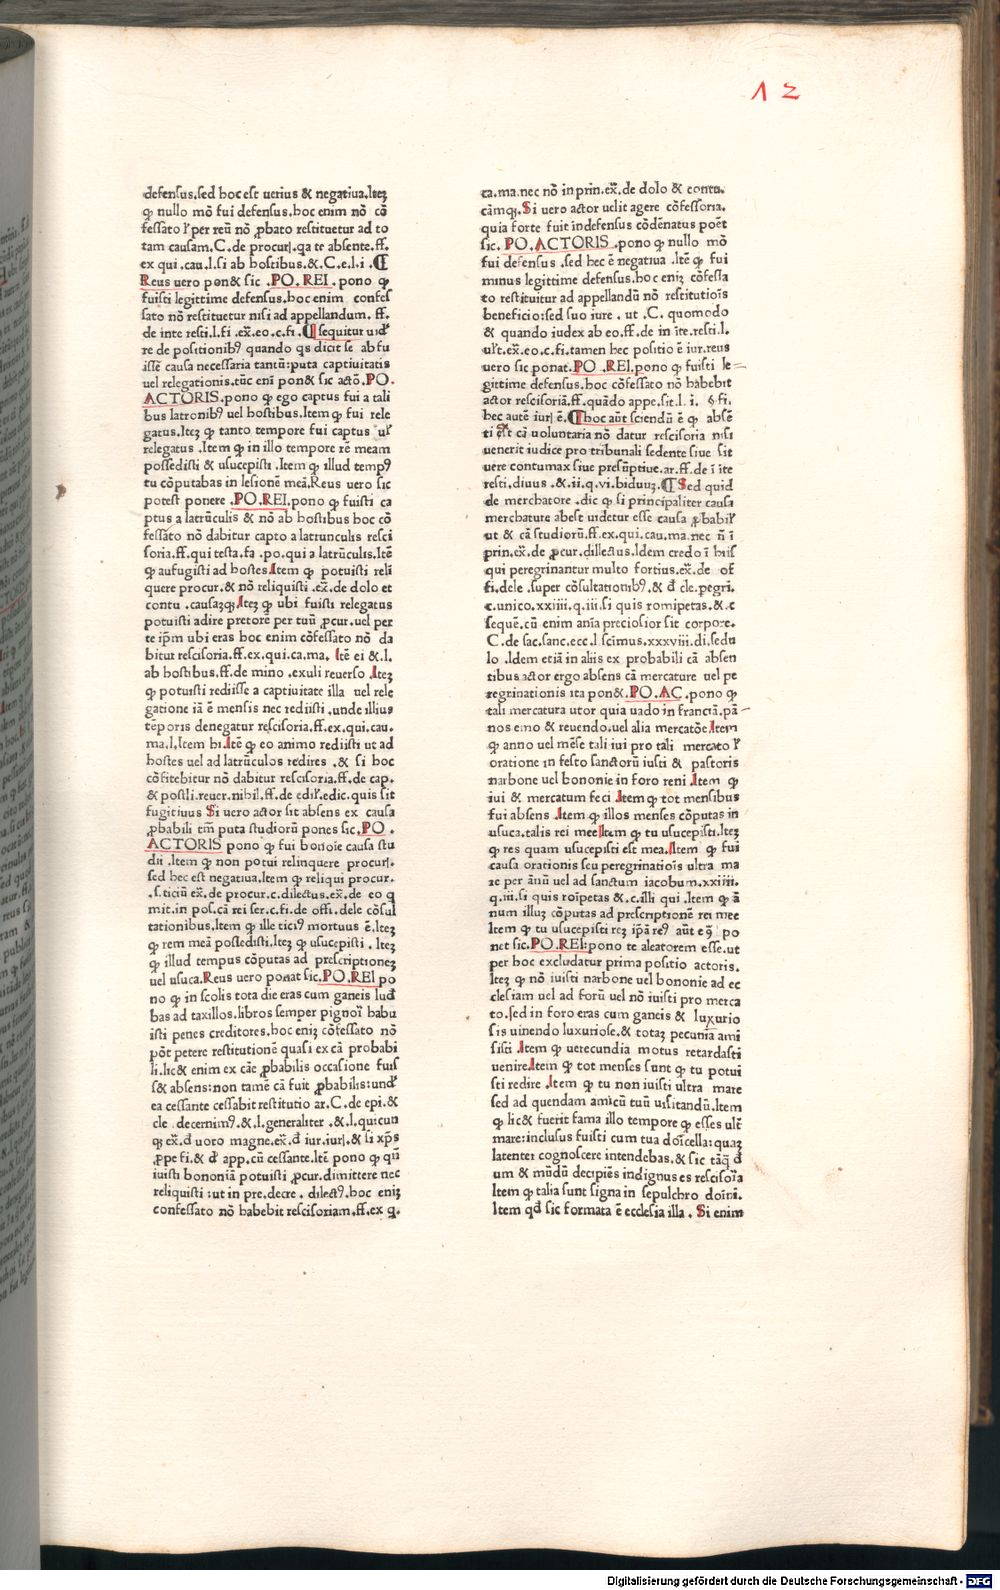 12
defensus.sed hoc est uerius & negatiua.Iteꝫ
ꝙ nullo mō fui defensus.hoc enim nō cō
fessato ł per reū nō ꝓbato restituetur ad to
tam causam.C.de procur.qa te absente.ff.
ex qui.cau.l.si ab hostibus.&.C.e.l.i.¶
Reus uero pon& sic .PO. REI. pono ꝙ
fuisti legittime defensus.hoc enim confes
sato nō restituetur nisi ad appellandum. ff.
de inte resti.l.fi .ex̄.eo.c.fi.¶ sequitur uid
re de positionibꝰ quando qs dicit se abfu
isse causa necessaria tantū:puta captiuitatis
uel relegationis.tūc eni pon& sic actō.PO.
ACTORIS.pono ꝙ ego captus fui a tali
bus latronibꝰ uel hostibus.Item ꝙ fui rele
gatus.Iteꝫ ꝙ tanto tempore fui captus uł
relegatus .Item ꝙ in illo tempore rē meam
possedisti & usucepisti .Item ꝙ illud tempꝰ
tu cōputabas in lesionē meā.Reus uero sic
potest ponere .PO.REI.pono ꝙ fuisti ca
ptus a latrūculis & nō ab hostibus hoc cō
fessato nō dabitur capto a latrunculis resci
soria.ff.qui testa.fa .po.qui a latrūculis.Itē
ꝙ aufugisti ad hostes.Item ꝙ potuisti reli
quere procur.& nō reliquisti .ex̄.de dolo et
contu .causaꝫqꝫ.Iteꝫ ꝙ ubi fuisti relegatus
potuisti adire pretorē per tuū ꝓcur.uel per
te ip̄m ubi eras hoc enim cōfessato nō da
bitur rescisoria.ff.ex.qui.ca.ma. Itē ei &.l.
ab hostibus.ff.de mino .exuli reuerso .Iteꝫ
ꝙ potuisti rediisse a captiuitate illa uel rele
gatione iā ē mensis nec rediisti .unde illius
tēporis denegatur rescisoria.ff.ex.qui.cau.
ma.l.Item hi.Itē ꝙ eo animo rediisti ut ad
hostes uel ad latrūculos redires .& si hoc
cōfitebitur nō dabitur rescisoria.ff.de cap.
& postli.reuer.nihil.ff.de edił.edic.quis sit
fugitiuus Si uero actor sit absens ex causa
ꝓbabili tm̄ puta studiorū pones sic.PO .
ACTORIS pono ꝙ fui bonoie causa stu
dii .Item ꝙ non potui relinquere procur.
sed hec est negatiua.Item ꝙ reliqui procur.
.s.ticiū ex̄.de procur.c.dilectus.ex̄.de eo q
mit.in pos.cā rei ser.c.fi.de offi.dele cōsul
tationibus.Item ꝙ ille ticiꝰ mortuus ē.Iteꝫ
ꝙ rem meā possedisti.Iteꝫ ꝙ usucepisti . Iteꝫ
ꝙ illud tempus cōputas ad prescriptioneꝫ
uel usuca.Reus uero ponat sic.PO.REI po
no ꝙ in scolis tota die eras cum ganeis lud
bas ad taxillos.libros semper pignori habu
isti penes creditores.hoc eniꝫ cōfessato nō
pōt petere restitutionē quasi ex cā probabi
li.lic& enim ex cāe ꝓbabilis occasione fuis
s& absens:non tamē cā fuit ꝓbabilis:und
ea cessante cessabit restitutio ar.C.de epi.&
cle .decernimꝰ.&.l.generaliter .&.l.quicun
qꝫ ex̄.d uoto magne.ex̄.d iur.iur.& si xp̄s
.ꝓpe fi.& d app.cū cessante.Itē pono ꝙ qn̄
iuisti bononiā potuisti ꝓcur.dimittere nec
reliquisti :ut in pre.decre . dilectꝰ.hoc eniꝫ
confessato nō habebit rescisoriam.ff.ex q.
ca.ma.nec nō in prin.ex̄.de dolo & contu.
cāmqꝫ.Si uero actor uelit agere cōfessoria.
quia forte fuit indefensus cōdēnatus poēt
sic. PO.ACTORIS .pono ꝙ nullo mō
fui defensus .sed hec ē negatiua .Itē ꝙ fui
minus legittime defensus.hoc eniꝫ cōfessa
to restituitur ad appellandū nō restitutiois
beneficio:sed suo iure . ut .C. quomodo
& quando iudex ab eo.ff.de in īte.resti.l.
ułt.ex̄.eo.c.fi.tamen hec positio ē iur.reus
uero sic ponat.PO .REI.pono ꝙ fuisti le
gittime defensus.hoc cōfessato nō habebit
actor rescisoriā.ff.quādo appe.sit.l. i. §.fi.
hec autē iur ē.¶hoc aūt sciendū ē ꝙ absē
ti est cā uoluntaria nō datur rescisoria nisi
uenerit iudice pro tribunali sedente siue sit
uere contumax siue presūptiue.ar.ff.de ī īte
resti.diuus .&.ii.q.vi.biduuꝫ.¶Sed quid
de merchatore .dic ꝙ si principaliter causa
merchature abest uidetur esse causa ꝓbabił
ut & cā studiorū.ff.ex.qui.cau.ma.nec n̄ ī
prin.ex̄.de ꝓcur.dillectus.Idem credo ī his
qui peregrinantur multo fortius.ex̄.de of
fi.dele .super cōsultationibꝰ.& d cle.ꝑegri.
c.unico.xxiiii.q.iii.si quis romipetas.&.c
sequē.cū enim anīa preciosior sit corpore.
C.de sac.sanc.ecc.l scimus.xxxviii.di.sedu
lo .Idem etiā in aliis ex probabili cā absen
tibus actor ergo absens cā mercature uel pe
regrinationis ita pon&.PO.AC.pono ꝙ
tali mercatura utor quia uado in franciā.pā
nos emo & reuendo.uel alia mercatōe.Item
ꝙ anno uel mēse tali iui pro tali mercato ł
oratione in festo sanctorū iusti & pastoris
narbone uel bononie in foro reni .Item ꝙ
iui & mercatum feci .Item ꝙ tot mensibus
fui absens .Item ꝙ illos menses cōputas in
usuca.talis rei mee.Item ꝙ tu usucepisti.Iteꝫ
ꝙ res quam usucepisti est mea.Item ꝙ fui
causa orationis seu peregrinatiois ultra ma
re per ānū uel ad sanctum iacobum.xxiiii.
q.iii.si quis roīpetas &.c.illi qui .Item ꝙ ā
num illuꝫ cōputas ad prescriptionē rei mee
Item ꝙ tu usucepisti reꝫ ip̄ā reꝰ aūt eꝰ po
net sic.PO.REI:pono te aleatorem esse.ut
per hoc excludatur prima positio actoris.
Iteꝫ ꝙ nō iuisti narbone uel bononie ad ec
clesiam uel ad forū uel nō iuisti pro merca
to.sed in foro eras cum ganeis & luxurio
sis uinendo luxuriose.& totaꝫ pecuniā ami
sisti .Item ꝙ uerecundia motus retardasti
uenire.Item ꝙ tot menses sunt ꝙ tu potui
sti redire .Item ꝙ tu non iuisti ultra mare
sed ad quendam amicū tuū uisitandū.Item
ꝙ lic& fuerit fama illo tempore ꝙ esses ulē
mare:inclusus fuisti cum tua doīcella:quaꝫ
latenter cognoscere intendebas.& sic tāq̄ d
um & mūdū decipiēs indignus es rescisoīa
Item ꝙ talia sunt signa in sepulchro doīni.
Item qd sic formata ē ecclesia illa . Si enim
Digitalisierung gefördert durch die Deutsche Forschungsgemeinschaft - DFG